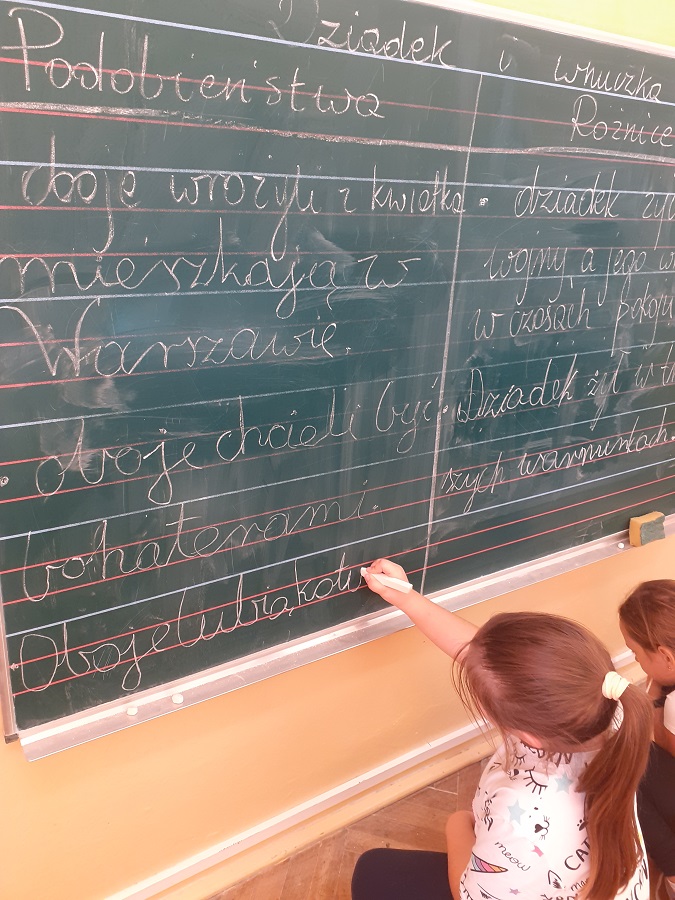 Dziadek i wnuczka
Podobieństwa
doje wrożyli z kwiatka
mieszkają w
Warszawie.
oboje chcieli być
bohaterami.
Oboje lubią
Rożnice
dziadek żył
wojny a jego
w czasach pokoju
Dziadek żył w
szych warunkach.
meow